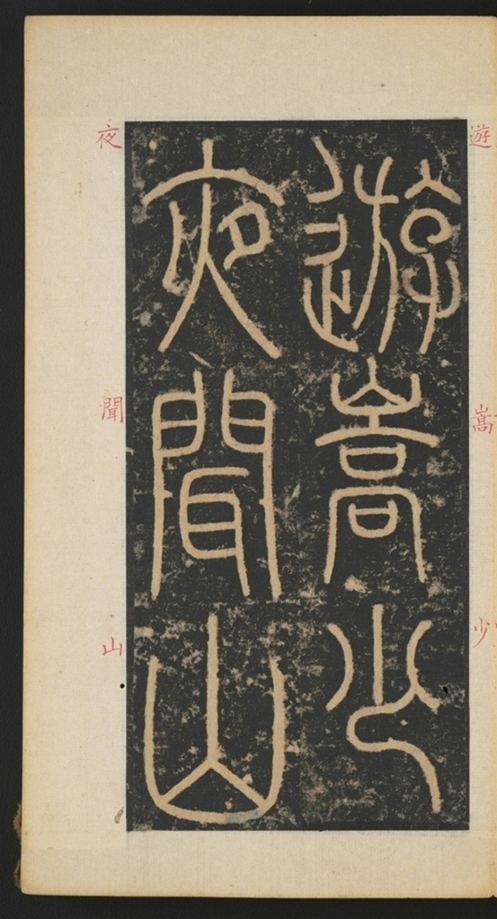 遊嵩少
夜聞山
遊
嵩
少
夜
聞
山